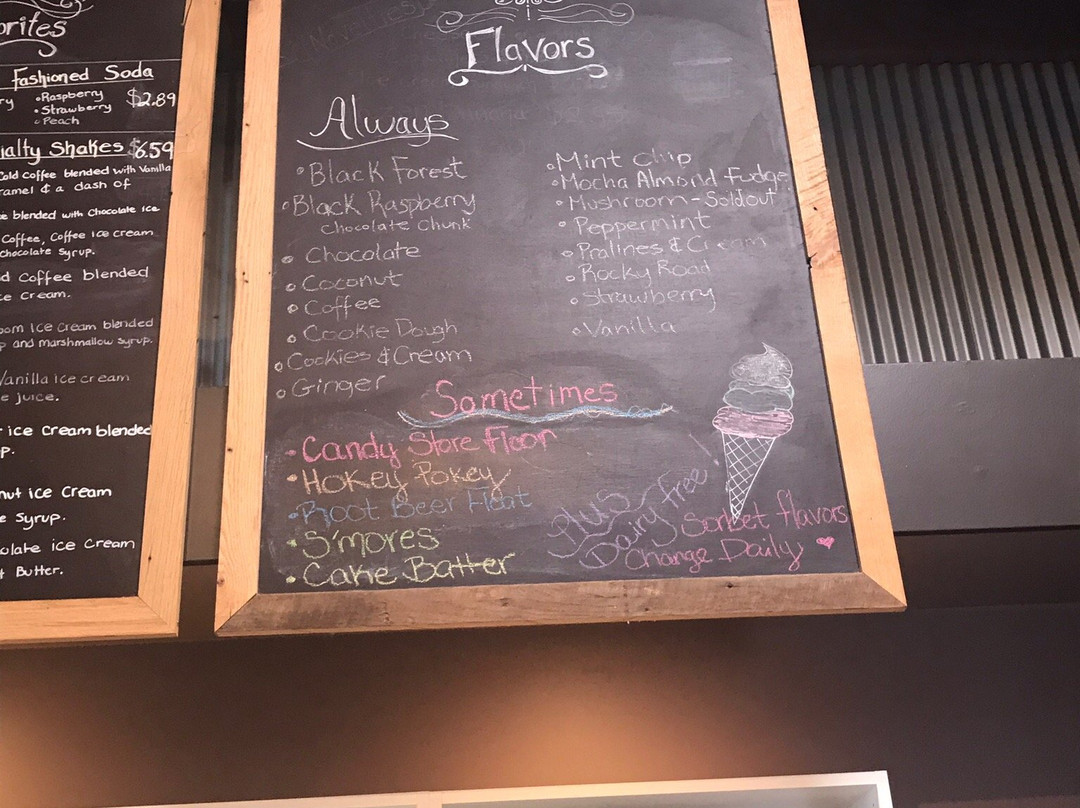 orites
Fashioned Soda
ry
• Raspberry
• Strawberry
• Peach
$2.89
ialty Shakes $6.59
Cold coffee blended with Vanilla
ramel & a dash of
e blended with Chocolate Ice
Coffee, Coffee Ice cream
chocolate syrup.
d Coffee blended
ce Cream.
oom Ice Cream blended
p and marshmallow syrup.
Vanilla Ice cream
e juice.
r ice Cream blended
p.
nut ice Cream
e Syrup.
olate ice Cream
t Butter.
Flavors
Always
• Black Forest
• Black Raspberry
Chocolate Chunk
• Chocolate
• Coconut
• Coffee
• Cookie Dough
• Cookies & Cream
• Ginger
• Mint Chip
• Mocha Almond Fudge
• Mushroom - Soldout
• Peppermint
• Pralines & Cream
• Rocky Road
• Strawberry
• Vanilla
Sometimes
• Candy Store Floor
• Hokey Pokey
• Root Beer Float
• S'mores
• Cake Batter
Plus
Dairy Free
Sorbet flavors
Change Daily